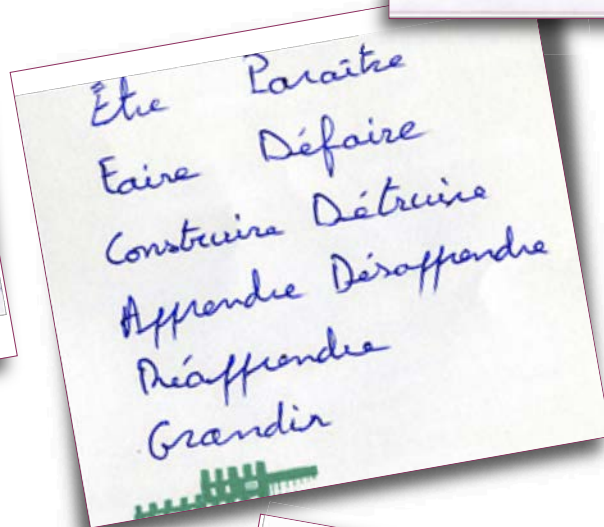 Être Paraître
Faire Défaire
Construire Détruire
Apprendre Désapprendre
Réapprendre
Grandir